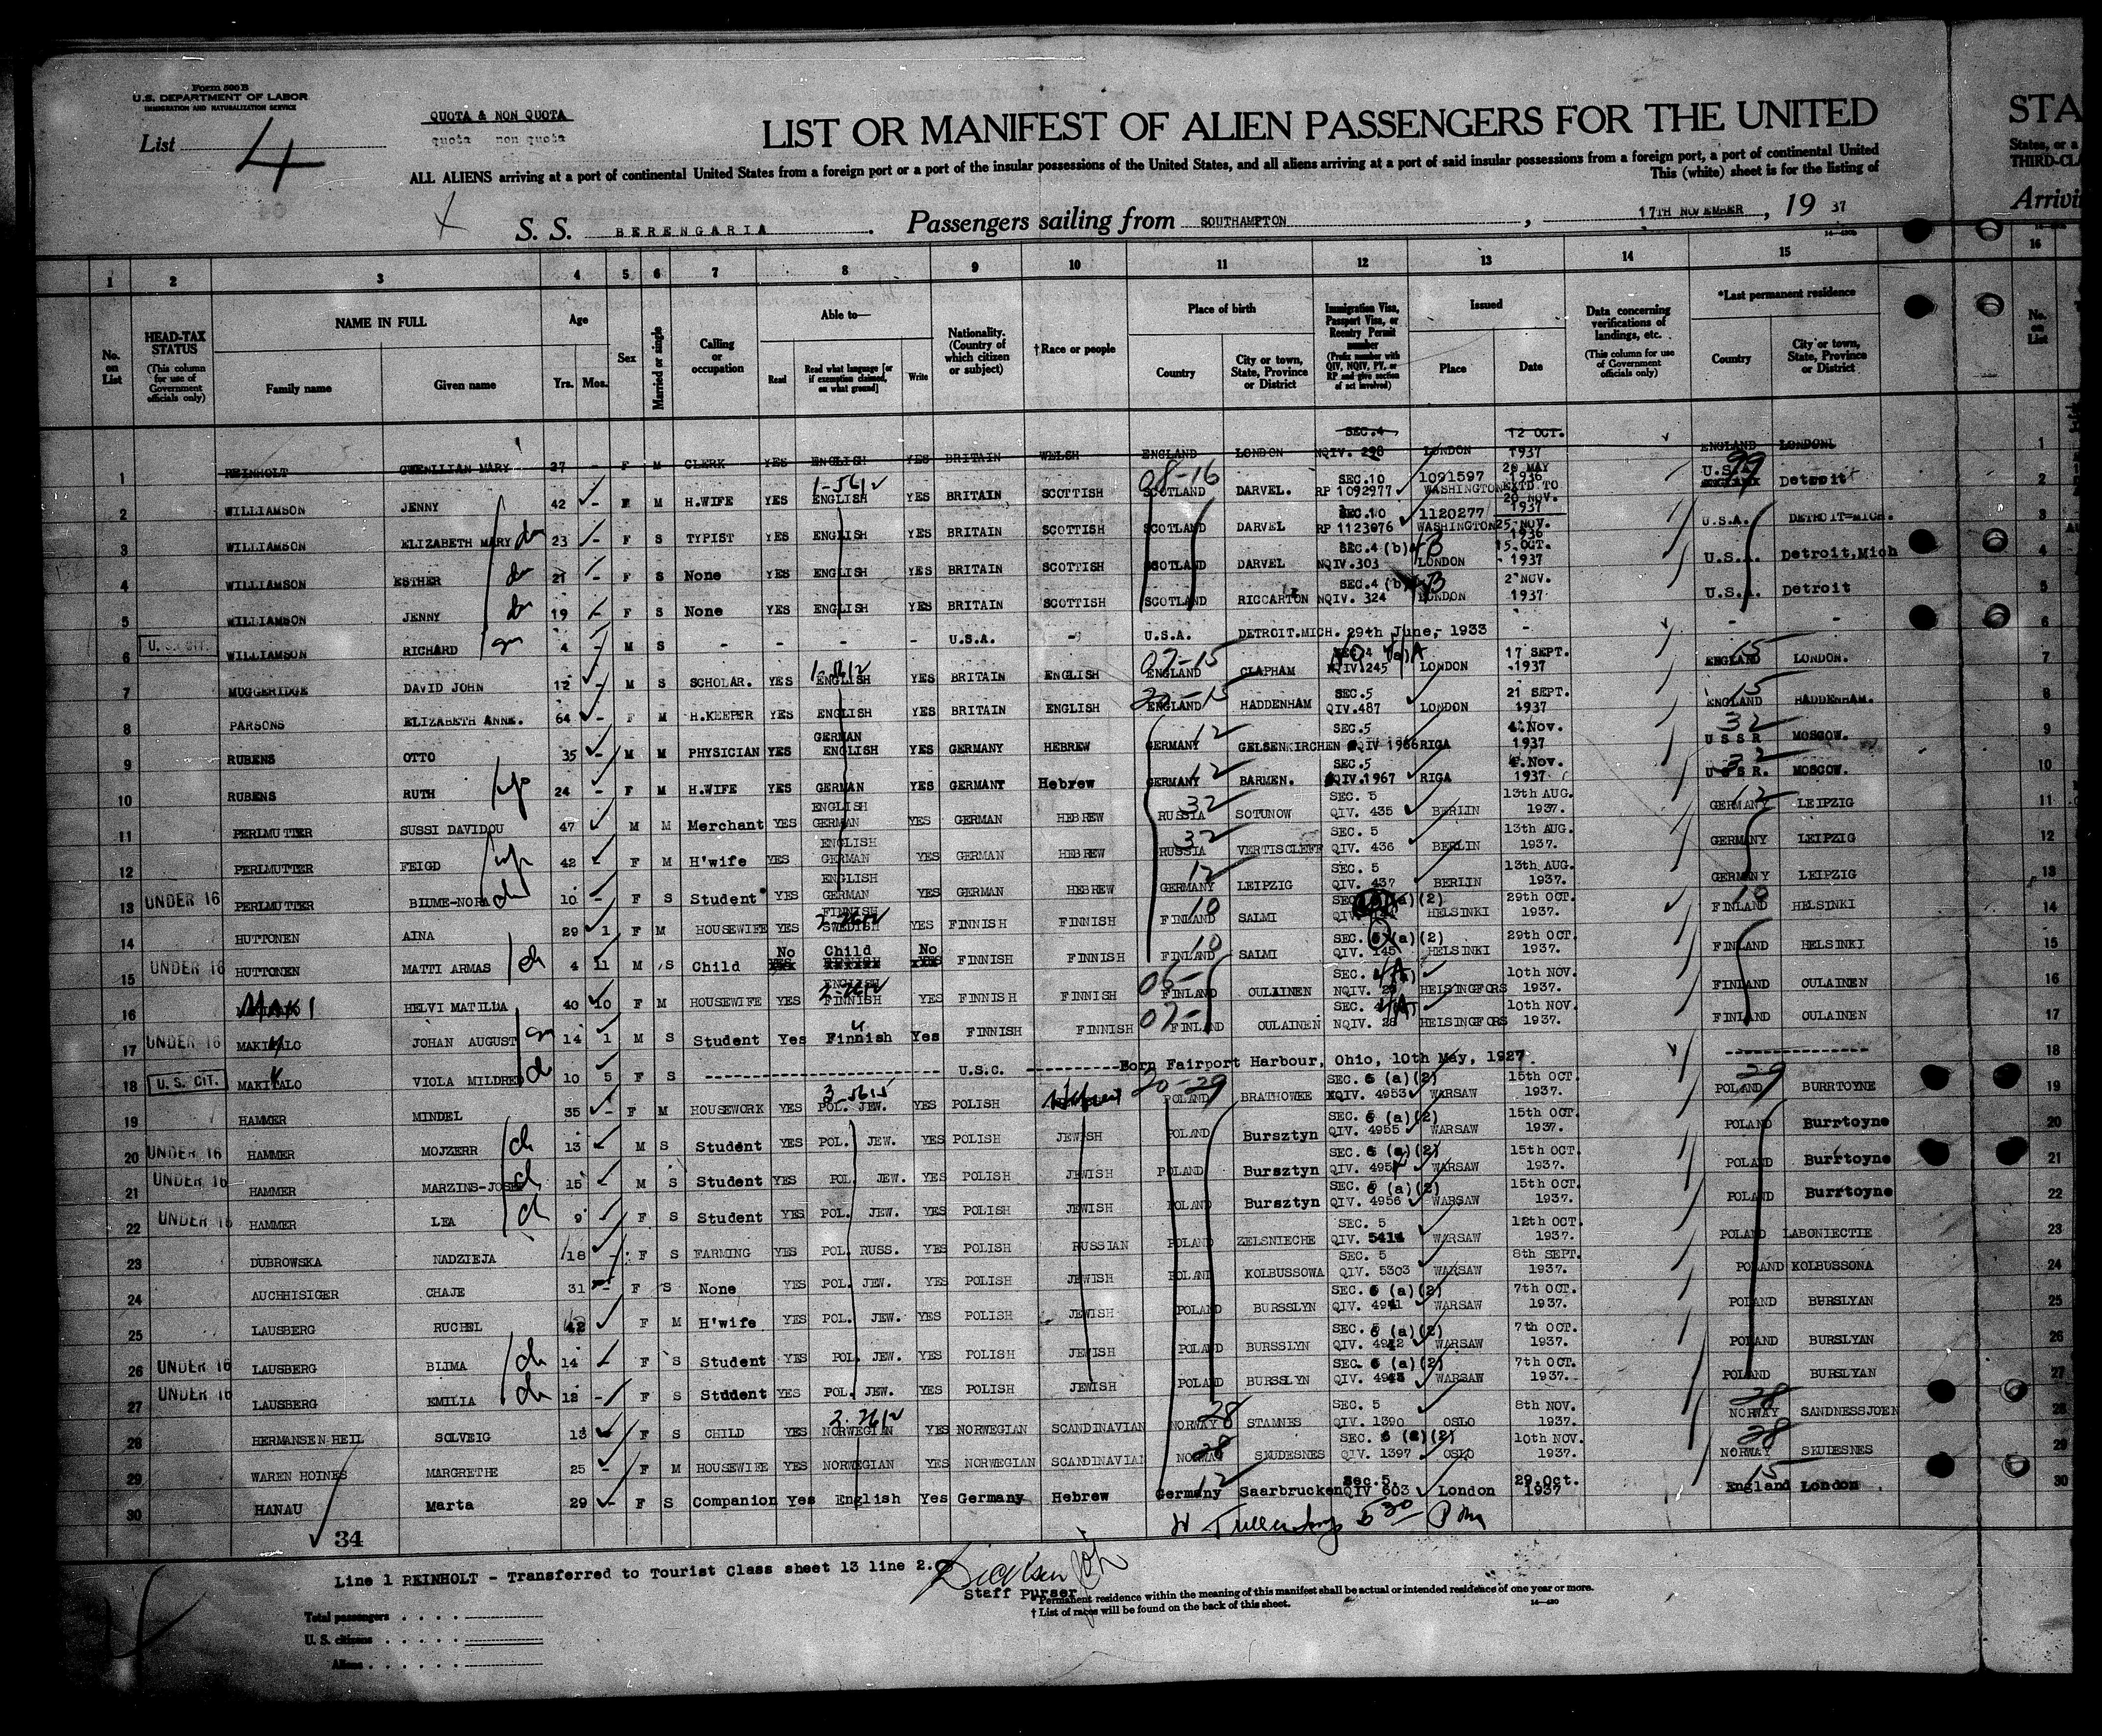 Form 500 B
U.S. DEPARTMENT OF LABOR
IMMIGRATION AND NATURALIZATION SERVICE
List 4
QUOTA & NON QUOTA
quota non quota
LIST OR MANIFEST OF ALIEN PASSENGERS FOR THE UNITED
STA
ALL ALIENS arriving at a port of continental United States from a foreign port or a port of the insular possessions of the United States, and all aliens arriving at a port of said insular possessions from a foreign port, a port of continental United
States, or a
This (white) sheet is for the listing of
THIRD-CLA
S. S. BERENGARIA. Passengers sailing from SOUTHAMPTON, 17TH NOVEMBER, 19 37
Arrivi
1 2 3 4 5 6 7 8 9 10 11 12 13 14 15 16
No. on List
HEAD-TAX STATUS (This column for use of Government officials only)
NAME IN FULL Family name Given name
Age Yrs. Mos.
Sex
Married or single
Calling or occupation
Able to— Read Read what language [or if exemption claimed, on what ground] Write
Nationality. (Country of which citizen or subject)
†Race or people
Place of birth Country City or town, State, Province or District
Immigration Visa, Passport Visa, or Reentry Permit number (Prefix number with QIV, NQIV, PV, or RP and give section of act involved)
Issued Place Date
Data concerning verifications of landings, etc. (This column for use of Government officials only)
*Last permanent residence Country City or town, State, Province or District
No. on List
1 REINHOLT GWENLLIAN MARY 27 - F M CLERK YES ENGLISH YES BRITAIN WELSH ENGLAND LONDON SEC.4 NQIV. 298 LONDON 12 OCT. 1937 ENGLAND LONDON 1
2 WILLIAMSON JENNY 42 - F M H.WIFE YES ENGLISH YES BRITAIN SCOTTISH SCOTLAND DARVEL. SEC.10 RP 1092977 1091597 WASHINGTON 20 MAY 1936 EXTD TO 20 NOV. 1937 U.S.A. Detroit 2
3 WILLIAMSON ELIZABETH MARY 23 - F S TYPIST YES ENGLISH YES BRITAIN SCOTTISH SCOTLAND DARVEL SEC.10 RP 1123076 1120277 WASHINGTON 25 NOV. 1936 U.S.A. DETROIT-MICH. 3
4 WILLIAMSON ESTHER 21 - F S None YES ENGLISH YES BRITAIN SCOTTISH SCOTLAND DARVEL SEC.4 (b) NQIV.303 LONDON 15 OCT. 1937 U.S.A. Detroit,Mich 4
5 WILLIAMSON JENNY 19 - F S None YES ENGLISH YES BRITAIN SCOTTISH SCOTLAND RICCARTON SEC.4 (b) NQIV. 324 LONDON 2 NOV. 1937 U.S.A. Detroit 5
6 U. S. CIT. WILLIAMSON RICHARD 4 - M S - - - U.S.A. - U.S.A. DETROIT.MICH. 29th June,- 1933 - - - 6
7 MUGGERIDGE DAVID JOHN 12 - M S SCHOLAR. YES ENGLISH YES BRITAIN ENGLISH ENGLAND CLAPHAM NQIV 245 LONDON 17 SEPT. 1937 ENGLAND LONDON. 7
8 PARSONS ELIZABETH ANNE. 64 - F M H.KEEPER YES ENGLISH YES BRITAIN ENGLISH ENGLAND HADDENHAM SEC.5 QIV.487 LONDON 21 SEPT. 1937 ENGLAND HADDENHAM. 8
9 RUBENS OTTO 35 - M M PHYSICIAN YES GERMAN ENGLISH YES GERMANY HEBREW GERMANY GELSENKIRCHEN SEC.5 QIV 1966 RIGA 4 Nov. 1937 U S S R MOSCOW. 9
10 RUBENS RUTH 24 - F M H.WIFE YES GERMAN YES GERMANY Hebrew GERMANY BARMEN. SEC.5 QIV.1967 RIGA 4 Nov. 1937 U S S R. MOSCOW. 10
11 PERLMUTTER SUSSI DAVIDOU 47 M M Merchant YES ENGLISH GERMAN YES GERMAN HEBREW RUSSIA SOTUNOW SEC. 5 QIV. 435 BERLIN 13th AUG. 1937. GERMANY LEIPZIG 11
12 PERLMUTTER FEIGD 42 F M H'wife YES ENGLISH GERMAN YES GERMAN HEBREW RUSSIA VERTISCLEFF SEC. 5 QIV. 436 BERLIN 13th AUG. 1937. GERMANY LEIPZIG 12
13 UNDER 16 PERLMUTTER BLUME-NORA 10 - F S Student YES ENGLISH GERMAN YES GERMAN HEBREW GERMANY LEIPZIG SEC. 5 QIV. 437 BERLIN 13th AUG. 1937. GERMANY LEIPZIG 13
14 HUTTONEN AINA 29 1 F M HOUSEWIFE YES FINNISH SWEDISH YES FINNISH FINNISH FINLAND SALMI SEC. (a)(2) QIV. HELSINKI 29th OCT. 1937. FINLAND HELSINKI 14
15 UNDER 16 HUTTONEN MATTI ARMAS 4 11 M S Child No Child No FINNISH FINNISH FINLAND SALMI SEC. (a)(2) QIV. 145 HELSINKI 29th OCT. 1937. FINLAND HELSINKI 15
16 MAKI HELVI MATILDA 40 10 F M HOUSEWIFE YES ENGLISH FINNISH YES FINNISH FINNISH FINLAND OULAINEN SEC. NQIV. HELSINGFORS 10th NOV. 1937. FINLAND OULAINEN 16
17 UNDER 16 JOHAN AUGUST 14 1 M S Student Yes Finnish Yes FINNISH FINNISH FINLAND OULAINEN SEC. NQIV. 28 HELSINGFORS 10th NOV. 1937. FINLAND OULAINEN 17
18 U. S. CIT. VIOLA MILDRED 10 5 F S U.S.C. Born Fairport Harbour, Ohio, 10th May, 1927. 18
19 HAMMER MINDEL 35 - F M HOUSEWORK YES POL. JEW. YES POLISH POLAND BRATHOWEE SEC. 6 (a)(2) QIV. 4953 WARSAW 15th OCT. 1937. POLAND BURRTOYNE 19
20 UNDER 16 HAMMER MOJZERR 13 M S Student YES POL. JEW. YES POLISH JEWISH POLAND Bursztyn SEC. 6 (a)(2) QIV. 4955 WARSAW 15th OCT. 1937. POLAND Burrtoyne 20
21 UNDER 16 HAMMER MARZINS-JOSEF 15 M S Student YES POL. JEW. YES POLISH JEWISH POLAND Bursztyn SEC. 6 (a)(2) QIV. WARSAW 15th OCT. 1937. POLAND Burrtoyne 21
22 UNDER 16 HAMMER LEA 9 F S Student YES POL. JEW. YES POLISH JEWISH POLAND Bursztyn SEC. 6 (a)(2) QIV. 4956 WARSAW 15th OCT. 1937. POLAND Burrtoyne 22
23 DUBROWSKA NADZIEJA 18 - F S FARMING YES POL. RUSS. YES POLISH RUSSIAN POLAND ZELSNIECHE SEC. 5 QIV. 5414 WARSAW 12th OCT. 1937. POLAND LABONIECTIE 23
24 AUCHHISIGER CHAJE 31 - F S None YES POL. JEW. YES POLISH JEWISH POLAND KOLBUSSOWA SEC. 5 QIV. 5303 WARSAW 8th SEPT. 1937. POLAND KOLBUSSONA 24
25 LAUSBERG RUCHEL 42 F M H'wife YES POL. JEW. YES POLISH JEWISH POLAND BURSSLYN SEC. 6 (a)(2) QIV. 4941 WARSAW 7th OCT. 1937. POLAND BURSLYAN 25
26 UNDER 16 LAUSBERG BLIMA 14 - F S Student YES POL. JEW. YES POLISH JEWISH POLAND BURSSLYN SEC. 6 (a)(2) QIV. 4942 WARSAW 7th OCT. 1937. POLAND BURSLYAN 26
27 UNDER 16 LAUSBERG EMILIA 12 - F S Student YES POL. JEW. YES POLISH JEWISH POLAND BURSSLYN SEC. 6 (a)(2) QIV. 4943 WARSAW 7th OCT. 1937. POLAND BURSLYAN 27
28 HERMANSEN HEIL SOLVEIG 13 F S CHILD YES NORWEGIAN YES NORWEGIAN SCANDINAVIAN NORWAY STAMNES SEC. 5 QIV. 1390 OSLO 8th NOV. 1937. NORWAY SANDNESSJOEN 28
29 WAREN HOINES MARGRETHE 25 - F M HOUSEWIFE YES NORWEGIAN YES NORWEGIAN SCANDINAVIAN NORWAY SKUDESNES SEC. 6 (a)(2) QIV. 1397 OSLO 10th NOV. 1937. NORWAY SKUDESNES 29
30 HANAU Marta 29 - F S Companion Yes English Yes Germany Hebrew Germany Saarbrucken Sec.5. QIV 603 London 29 Oct. 1937 England London 30
34
Line 1 REINHOLT - Transferred to Tourist Class sheet 13 line 2.
Staff Purser
*Permanent residence within the meaning of this manifest shall be actual or intended residence of one year or more.
† List of races will be found on the back of this sheet.
Total passengers . . . .
U. S. citizens . . . . .
Aliens . . . . . .